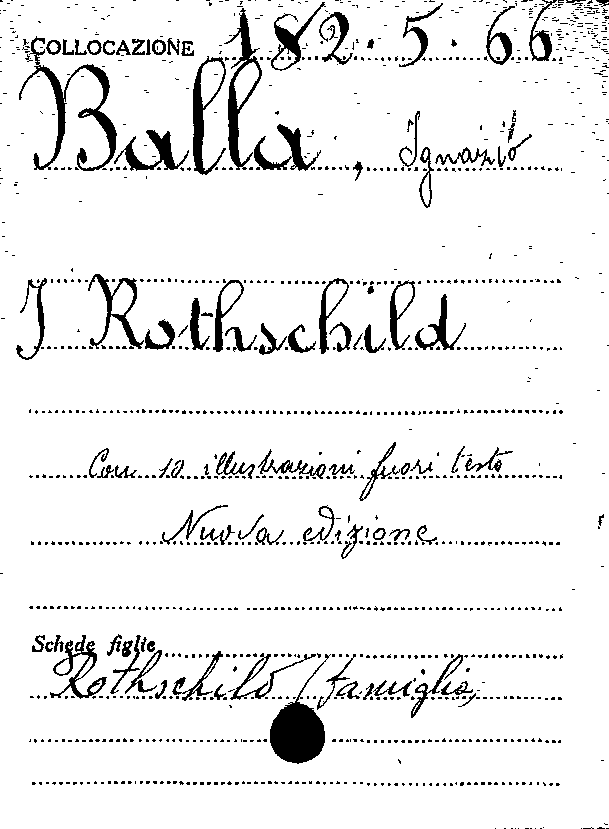 COLLOCAZIONE 182.5.66
Balla, Ignazio
I Rothschild
Con 12 illustrazioni fuori testo
Nuova edizione
Schede figlie
Rothschild (famiglia)